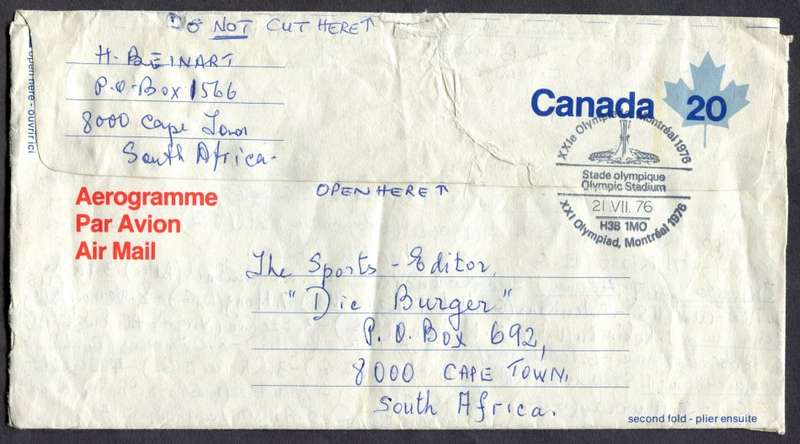 Do NOT CUT HERE↑
H. BEINART
P.O. Box 1566
8000 Cape Town
South Africa.
open here - ouvrir ici
Canada 20
XXIe Olympiade, Montréal 1976
Stade olympique
Olympic Stadium
21.VII.76
H3B 1M0
XXI Olympiad, Montréal 1976
Aerogramme
Par Avion
Air Mail
OPEN HERE↑
The Sports-Editor,
"Die Burger"
P.O. Box 692,
8000 CAPE TOWN.
South Africa.
second fold - plier ensuite